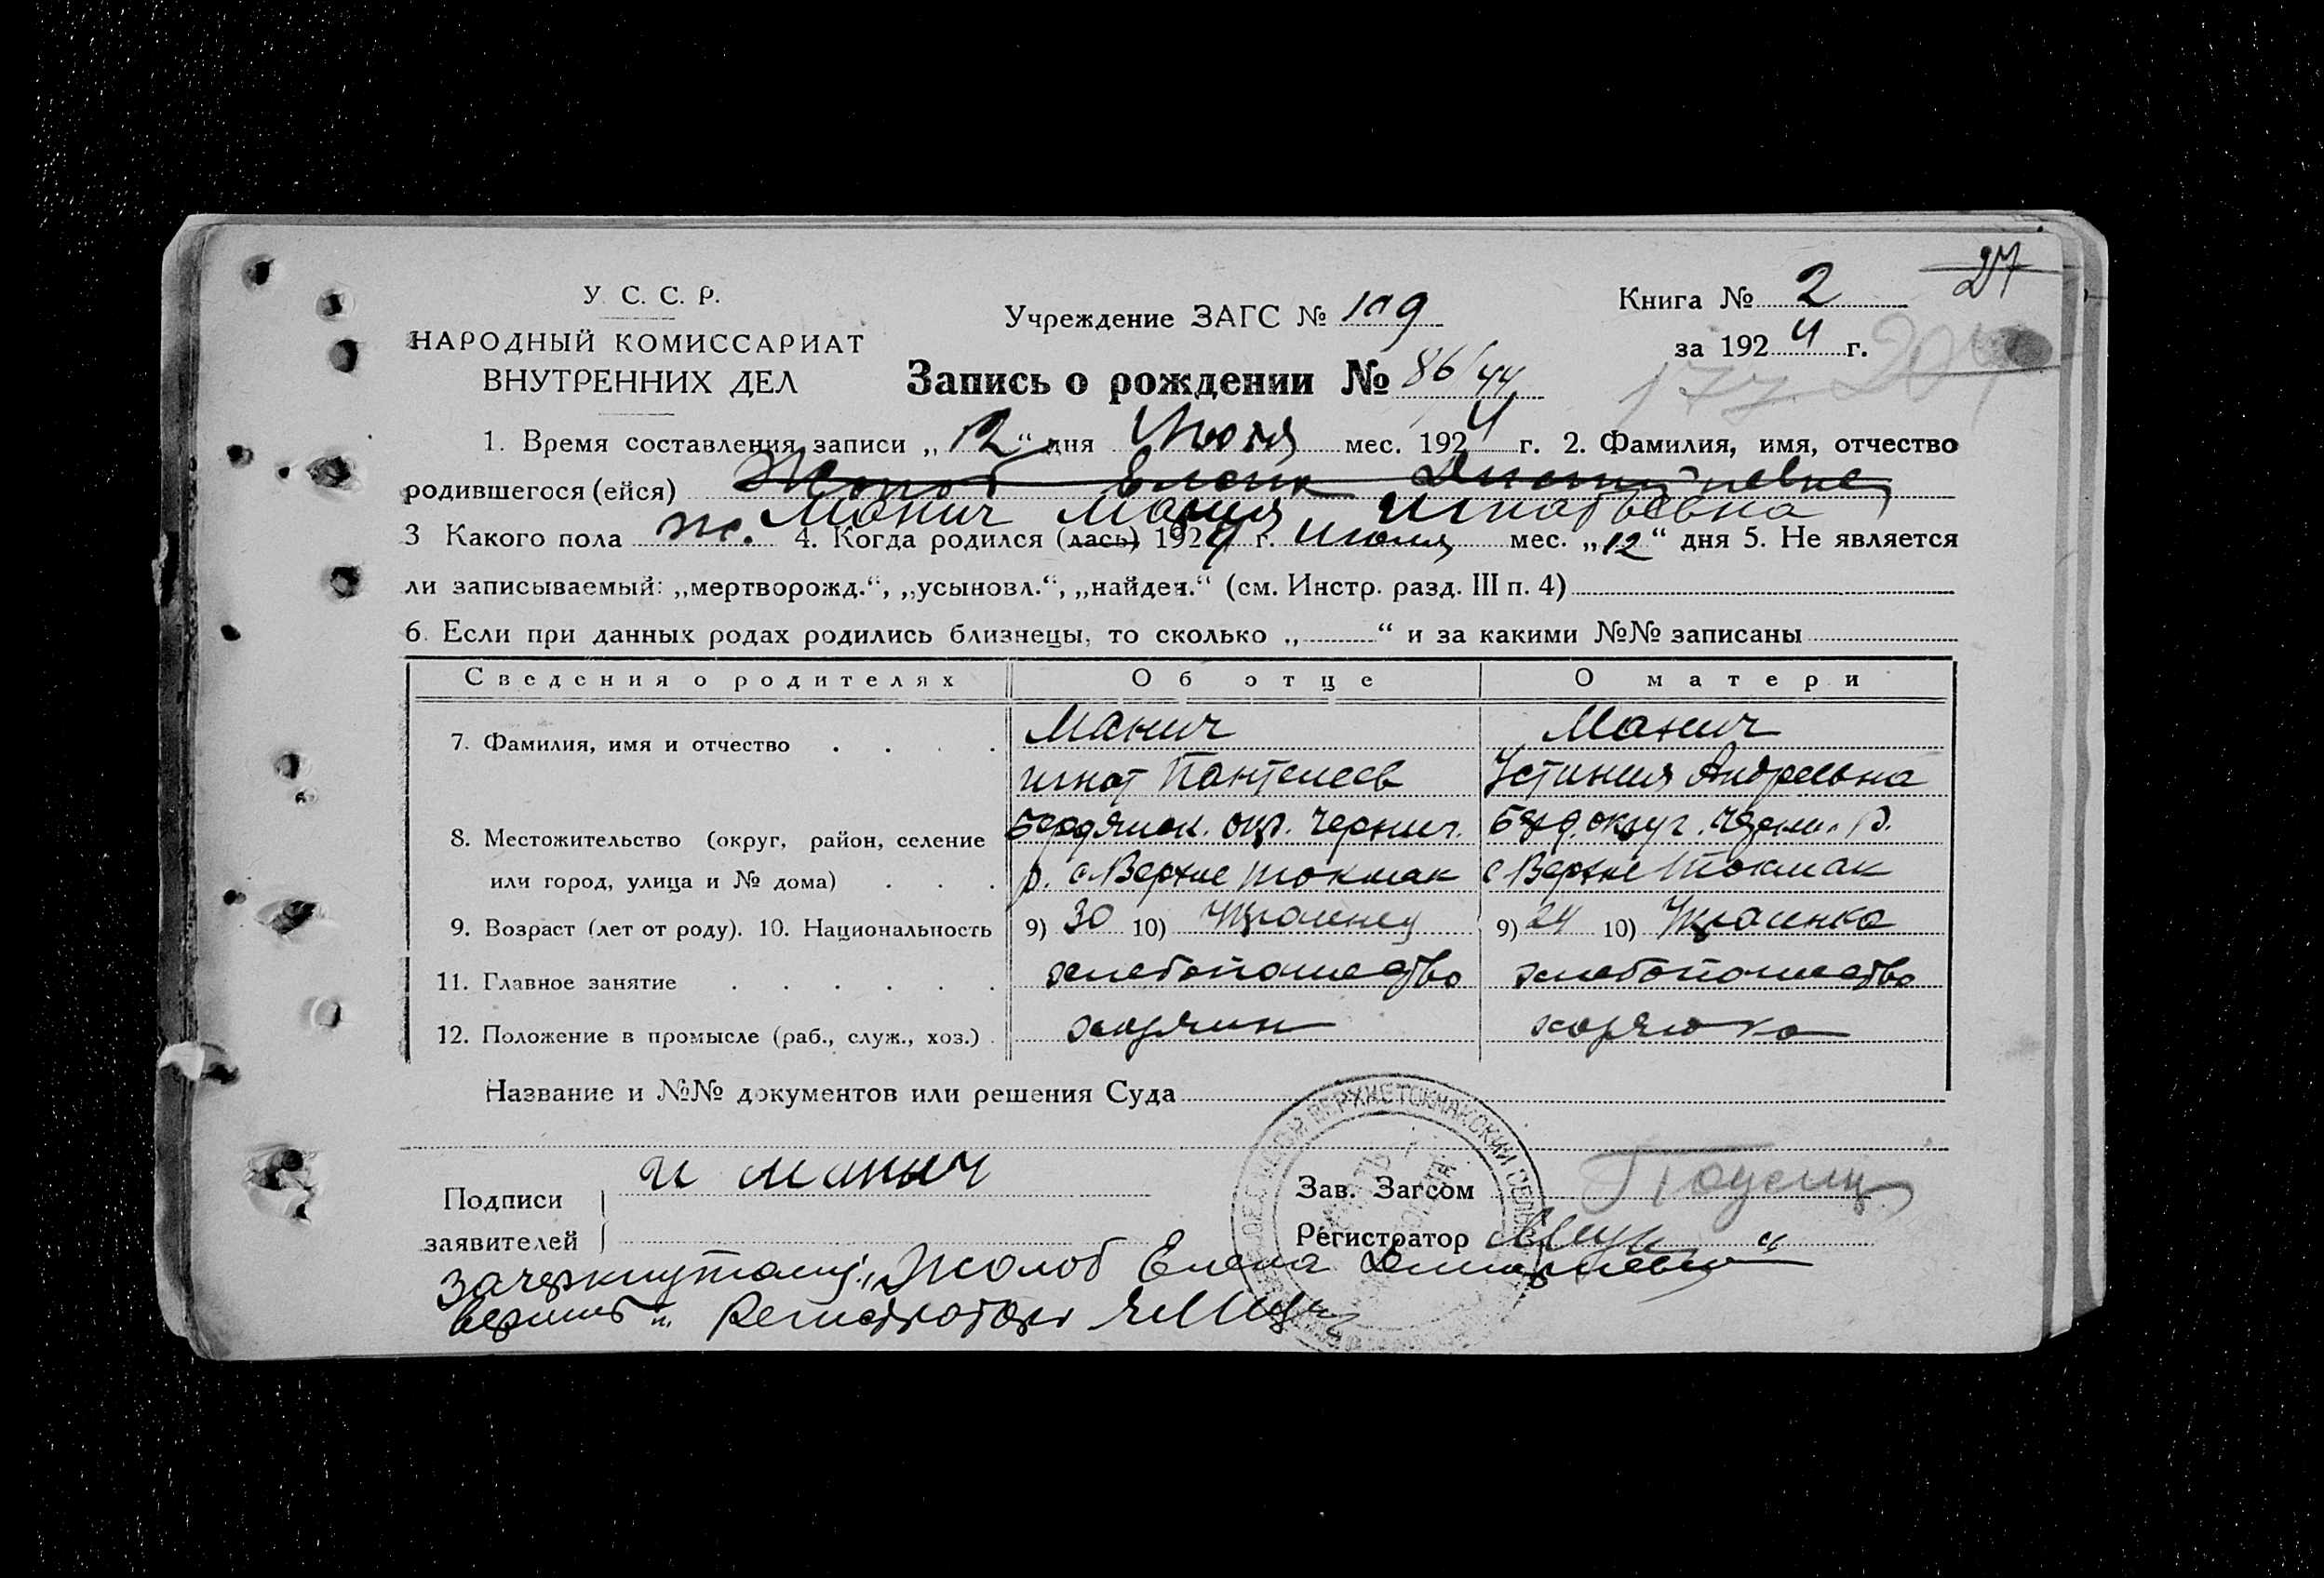 27
У. С. С. Р.
НАРОДНЫЙ КОМИССАРИАТ
ВНУТРЕННИХ ДЕЛ
Учреждение ЗАГС № 109
Книга № 2
за 1924 г.
177 204
Запись о рождении № 86/44
1. Время составления записи „12“ дня Июля мес. 1924 г. 2. Фамилия, имя, отчество
родившегося (ейся) Жолоб Елена
Манич Мария Игнатьевна
3 Какого пола ж. 4. Когда родился (лась) 1924 г. Июля мес. „12“ дня 5. Не является
ли записываемый: „мертворожд.“, „усыновл.“, „найден.“ (см. Инстр. разд. III п. 4)
6. Если при данных родах родились близнецы, то сколько „ “ и за какими №№ записаны
Сведения о родителях Об отце О матери
7. Фамилия, имя и отчество Манич Манич
Игнат Пантелеев Устиния Андреевна
8. Местожительство (округ, район, селение Бердянск. окр. Черниг. Берд. округ. Черни. р.
или город, улица и № дома) р. с. Верхне Токмак с Верхне Токмак
9. Возраст (лет от роду). 10. Национальность 9) 30 10) Украинец 9) 24 10) Украинка
11. Главное занятие хлебопашество хлебопашество
12. Положение в промысле (раб., служ., хоз.) хозяин хозяюка
Название и №№ документов или решения Суда
ВЕРХНЕТОКМАКСКИЙ
Подписи
заявителей
И Манич
Зав. Загсом
Регистратор
Зачеркнутому „Жолоб Елена
верить“ Регистратор